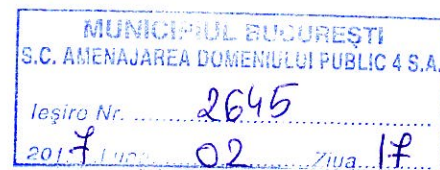 MUNICIPIUL BUCUREȘTI
S.C. AMENAJAREA DOMENIULUI PUBLIC 4 S.A.
Ieșire Nr. 2645
2017 Luna 02 Ziua 17